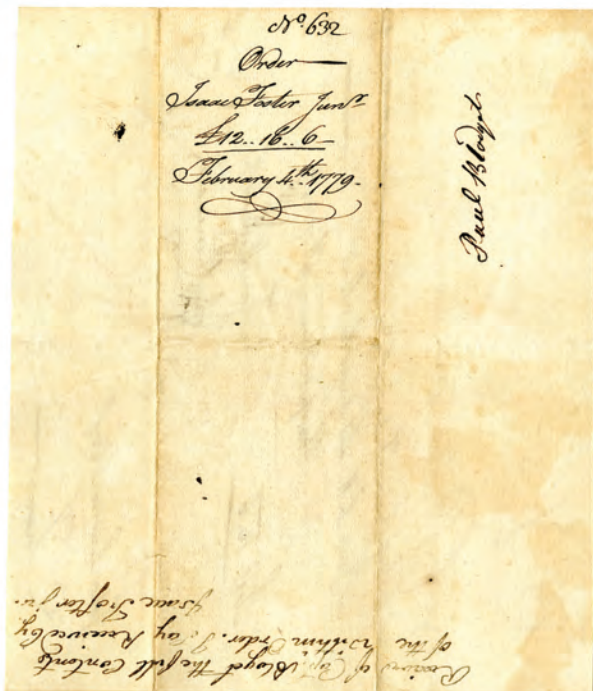 No. 632
Order
Isaac Foster Junr
£12..18..6
February 4th. 1779.
Paul Blodget
of Capt. Bloget the full Contents
of the within Order. I Say Received by
Isaac Froster jr.